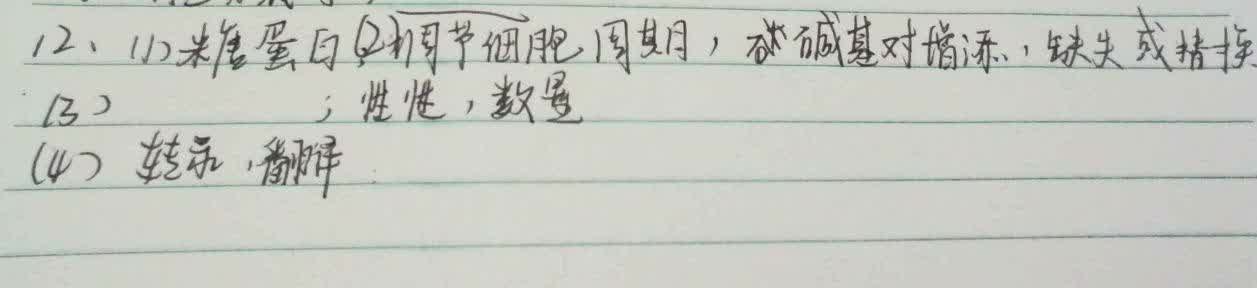 12、(1)糖蛋白(2)调节细胞周期，碱基对增添、缺失或替换
(3) ；性性，数量
(4) 转录，翻译